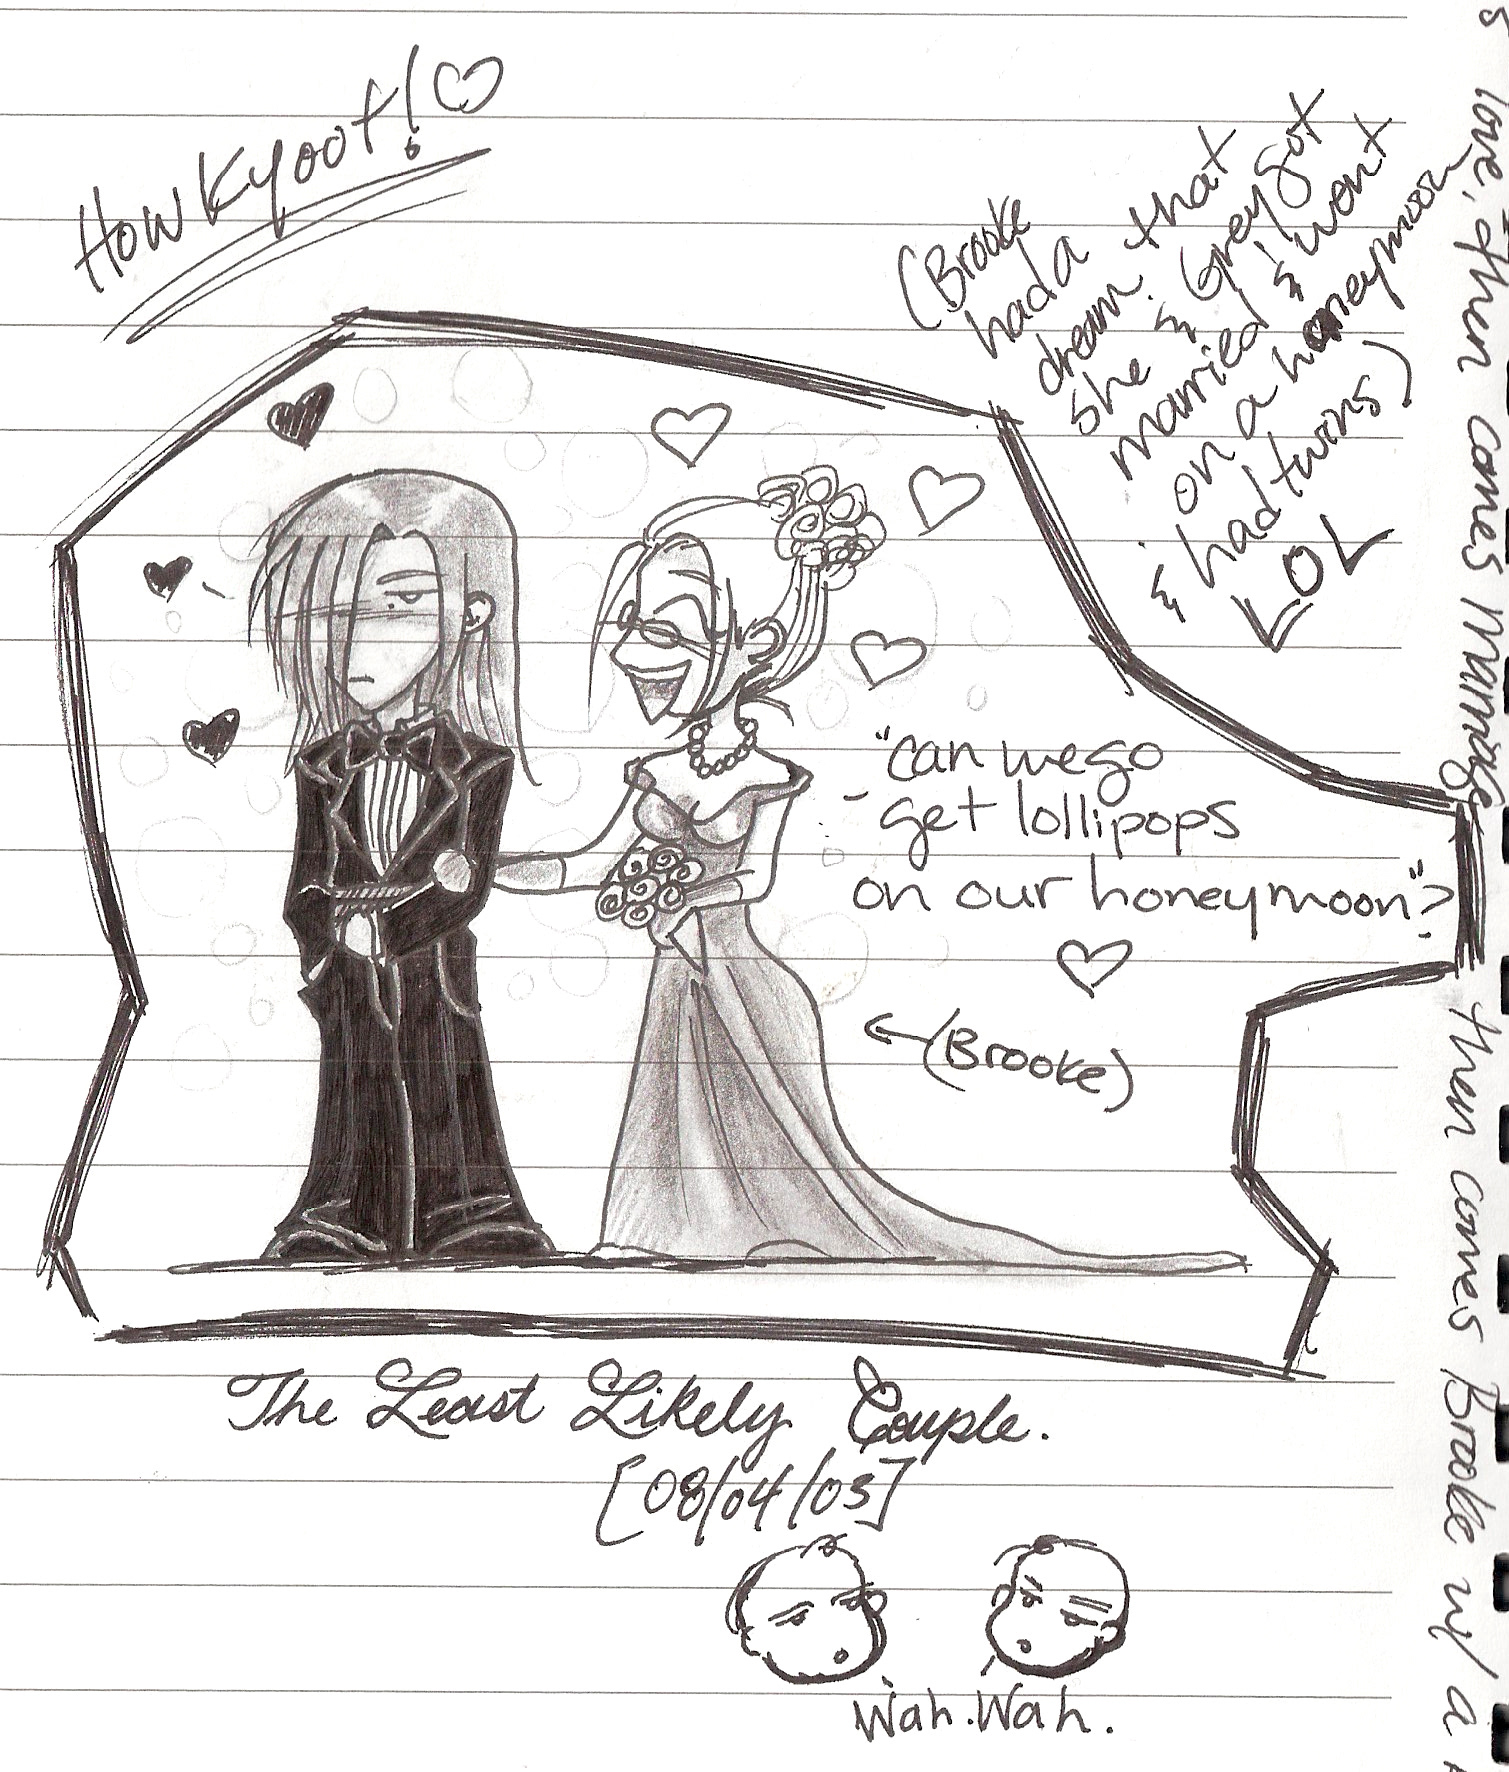 How Kyoot! ♡
(Brooke
had a
dream that
she & Grey got
married & went
on a honeymoon
& had twins)
LOL
"can we go
get lollipops
on our honeymoon"?
♡
←(Brooke)
The Least Likely Couple.
[08/04/03]
Wah. Wah.
love, then comes marriage then comes Brooke w/ a